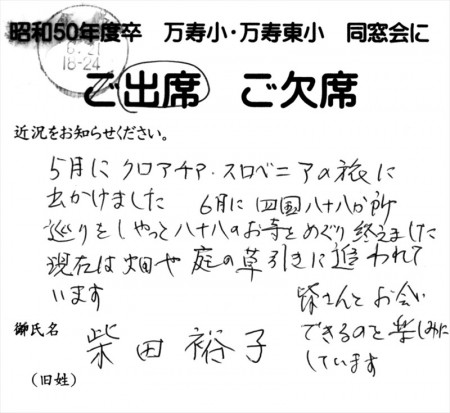 昭和50年度卒 万寿小・万寿東小 同窓会に
18-24
ご出席 ご欠席
近況をお知らせください。
5月に クロアチア・スロベニアの旅に
出かけました 6月に 四国八十八か所
巡りをし やっと八十八のお寺をめぐり終えました
現在は 畑や 庭の草引きに追われて
います
皆さんとお会い
できるのを楽しみに
しています
御氏名 柴田 裕子
(旧姓)